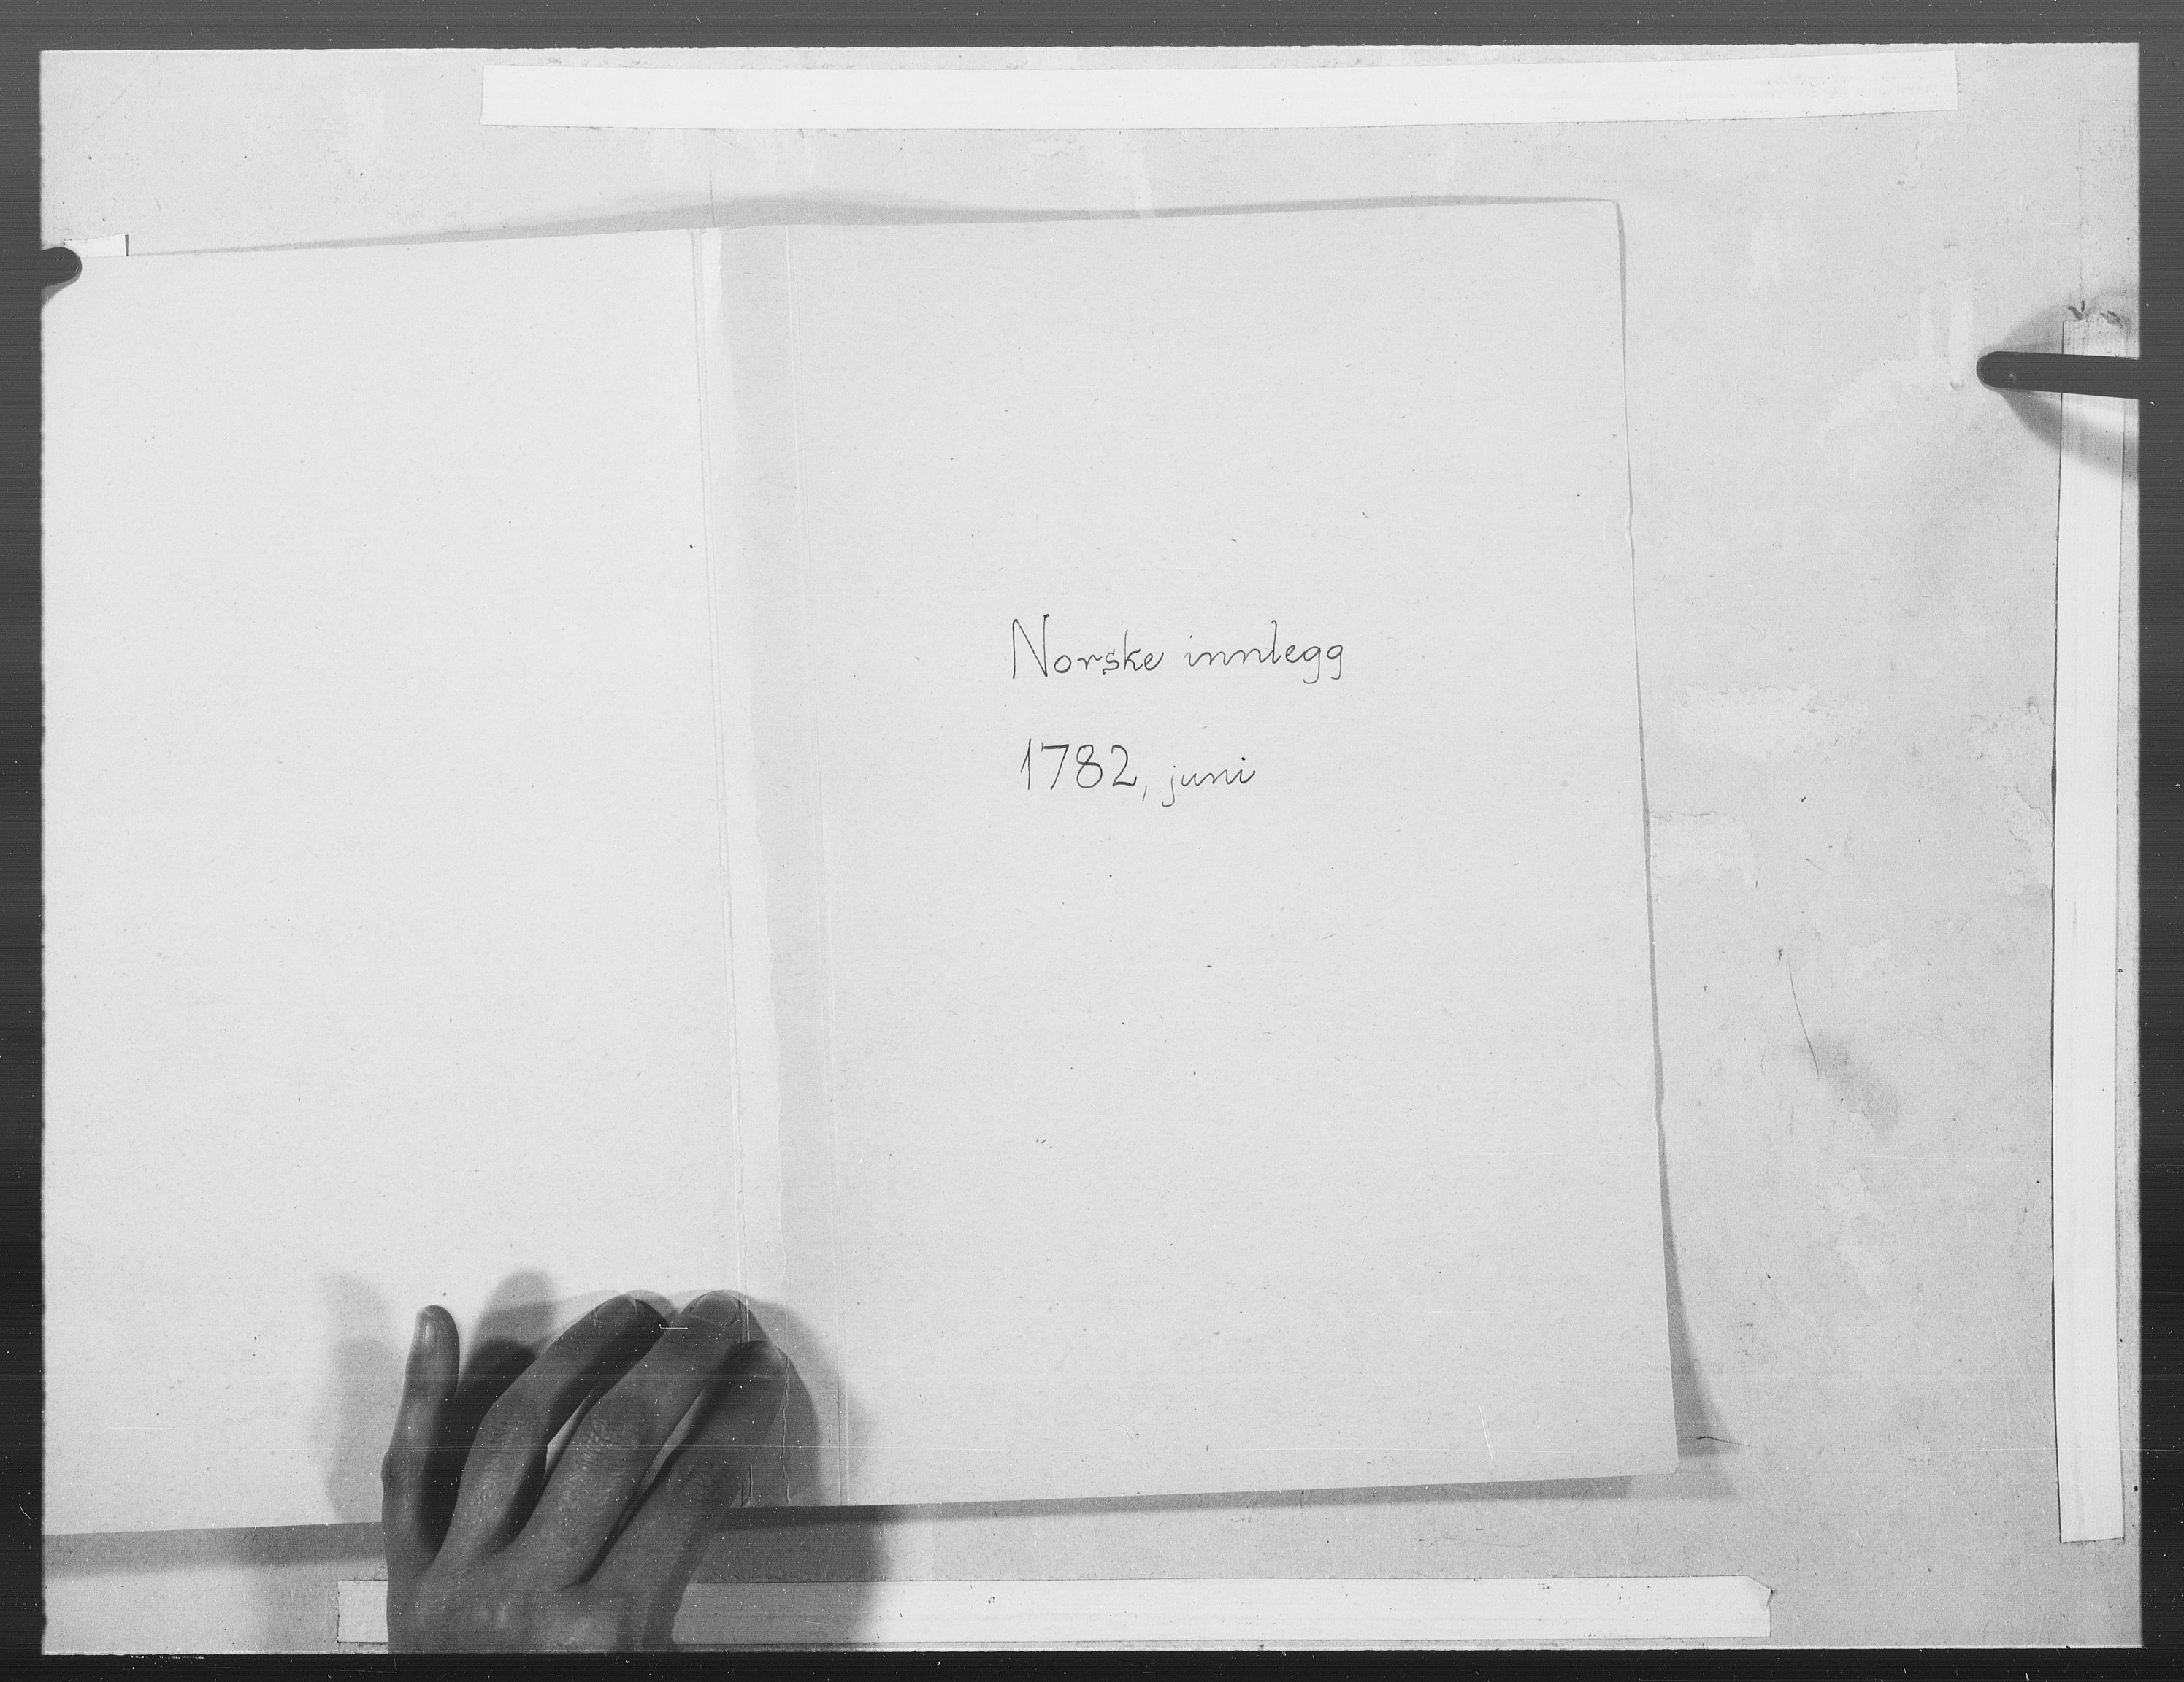 Norske innlegg
1782, juni